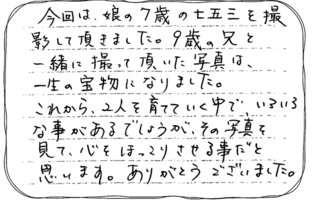 今回は、娘の7歳の七五三を撮
影して頂きました。9歳の兄と
一緒に撮って頂いた写真は、
一生の宝物になりました。
これから、2人を育てていく中で、いろいろ
な事があるでしょうが、その写真を
見て、心をほっこりさせる事だと
思います。ありがとうございました。